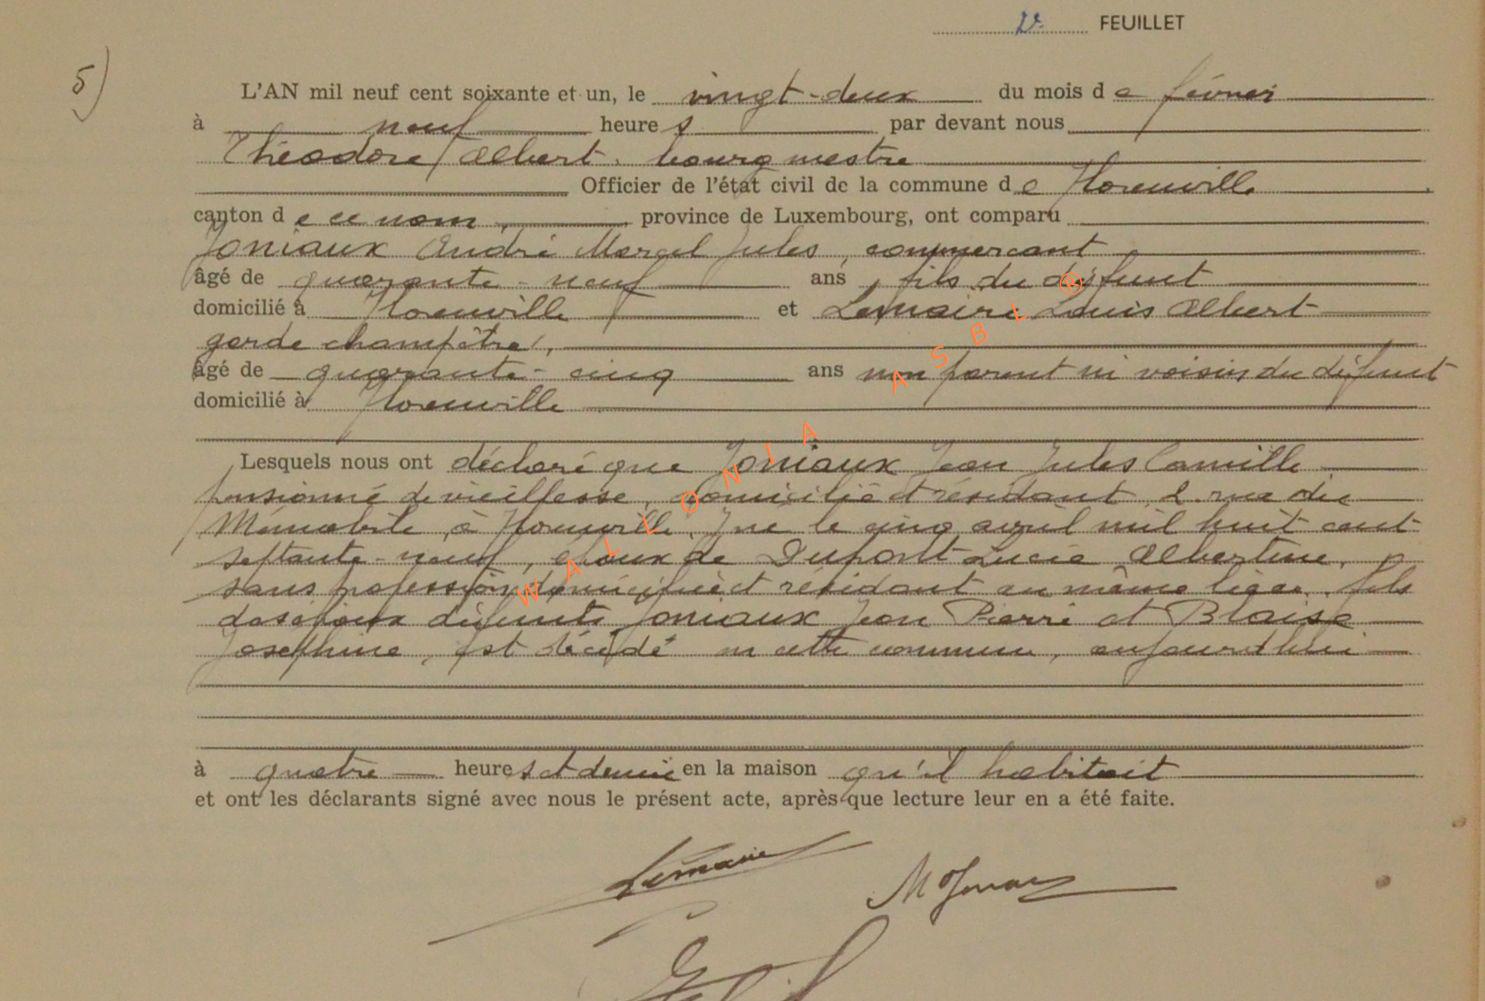 2e FEUILLET
5)
L'AN mil neuf cent soixante et un, le vingt-deux du mois de février
à neuf heures par devant nous
Théodore Albert, bourgmestre
Officier de l'état civil de la commune de Florenville
canton de ce nom, province de Luxembourg, ont comparu
Joniaux André Marcel Jules, commerçant
âgé de quarante-neuf ans fils du défunt
domicilié à Florenville et Lemaire Louis Albert
garde champêtre,
âgé de quarante-cinq ans non parent ni voisin du défunt
domicilié à Florenville
Lesquels nous ont déclaré que Joniaux Jean Jules Camille
pensionné de vieillesse, domicilié et résidant, 2 rue de
à Florenville, né le cinq avril mil huit cent
septante-neuf, époux de Dupont Lucie Albertine,
sans profession, domiciliée et résidant au même lieu, fils
des époux défunts Joniaux Jean Pierre et Blaise
Josephine, est décédé en cette commune, aujourd'hui
à quatre heures et demie en la maison qu'il habitait
et ont les déclarants signé avec nous le présent acte, après que lecture leur en a été faite.
Lemaire
WALLONIA ASBL